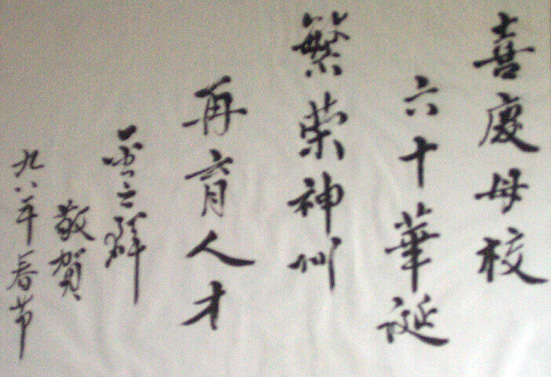 喜慶母校
六十華誕
繁荣神州
再育人才
群
敬賀
九八年春节